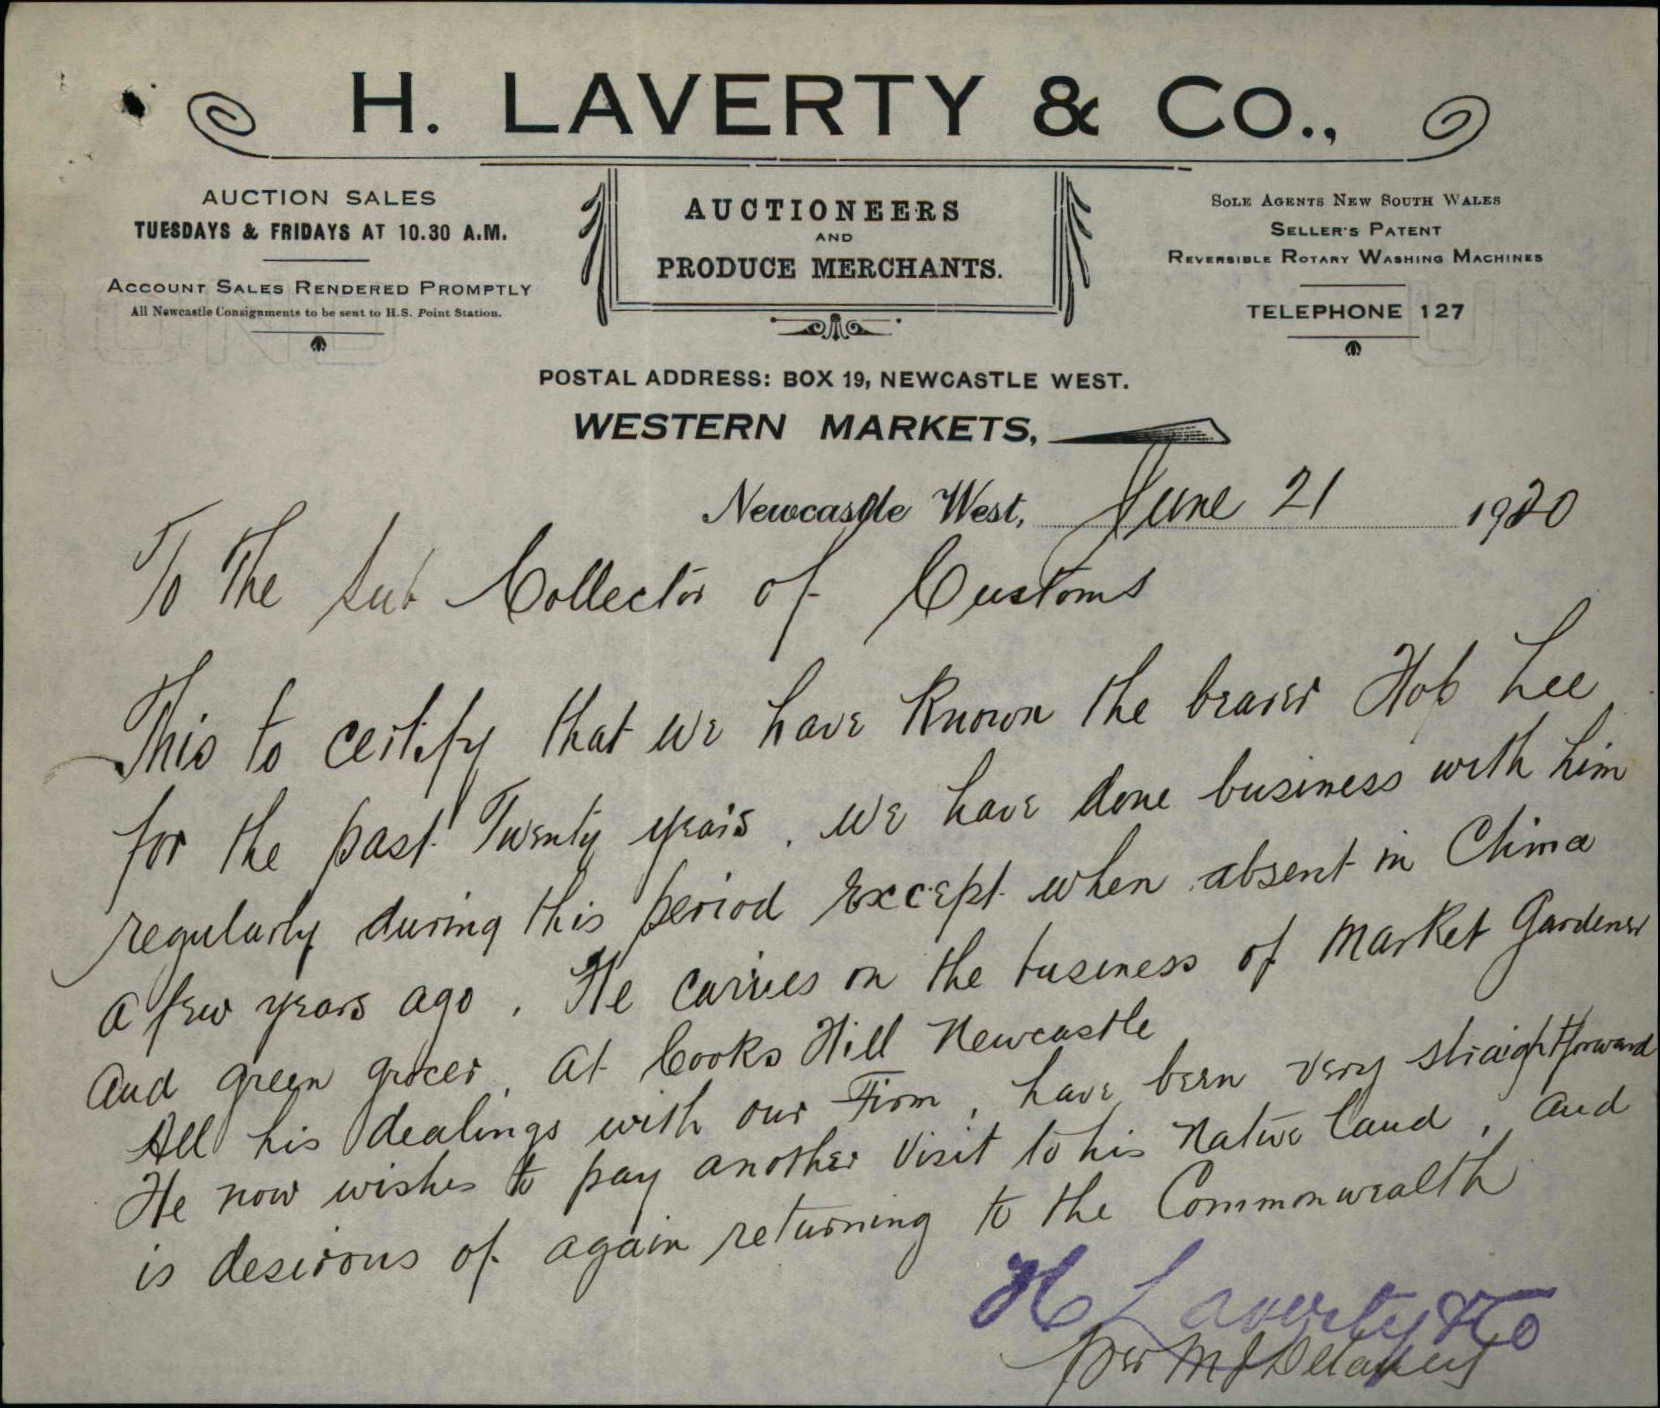 H. LAVERTY & CO.,
AUCTION SALES
TUESDAYS & FRIDAYS AT 10.30 A.M.
ACCOUNT SALES RENDERED PROMPTLY
All Newcastle Consignments to be sent to H.S. Point Station.
AUCTIONEERS
AND
PRODUCE MERCHANTS.
SOLE AGENTS NEW SOUTH WALES
SELLER'S PATENT
REVERSIBLE ROTARY WASHING MACHINES
TELEPHONE 127
POSTAL ADDRESS: BOX 19, NEWCASTLE WEST.
WESTERN MARKETS,
Newcastle West, June 21 1920
To The Sub Collector of Customs
This to certify that we have known the bearer Hop Lee
for the past Twenty years. We have done business with him
regularly during this period except when absent in China
a few years ago. He carries on the business of Market Gardener
and green grocer, at Cooks Hill Newcastle
All his dealings with our Firm, have been very straightforward
He now wishes to pay another visit to his native land, and
is desirous of again returning to the Commonwealth
H Laverty & Co
per M J